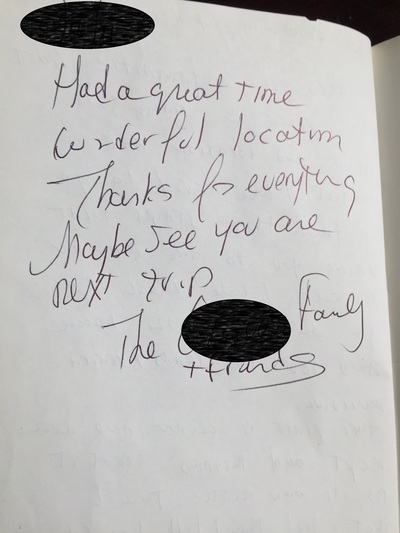 Had a great time
Wonderful location
Thanks for everything
Maybe See you are
next trip
The Family
+ friends